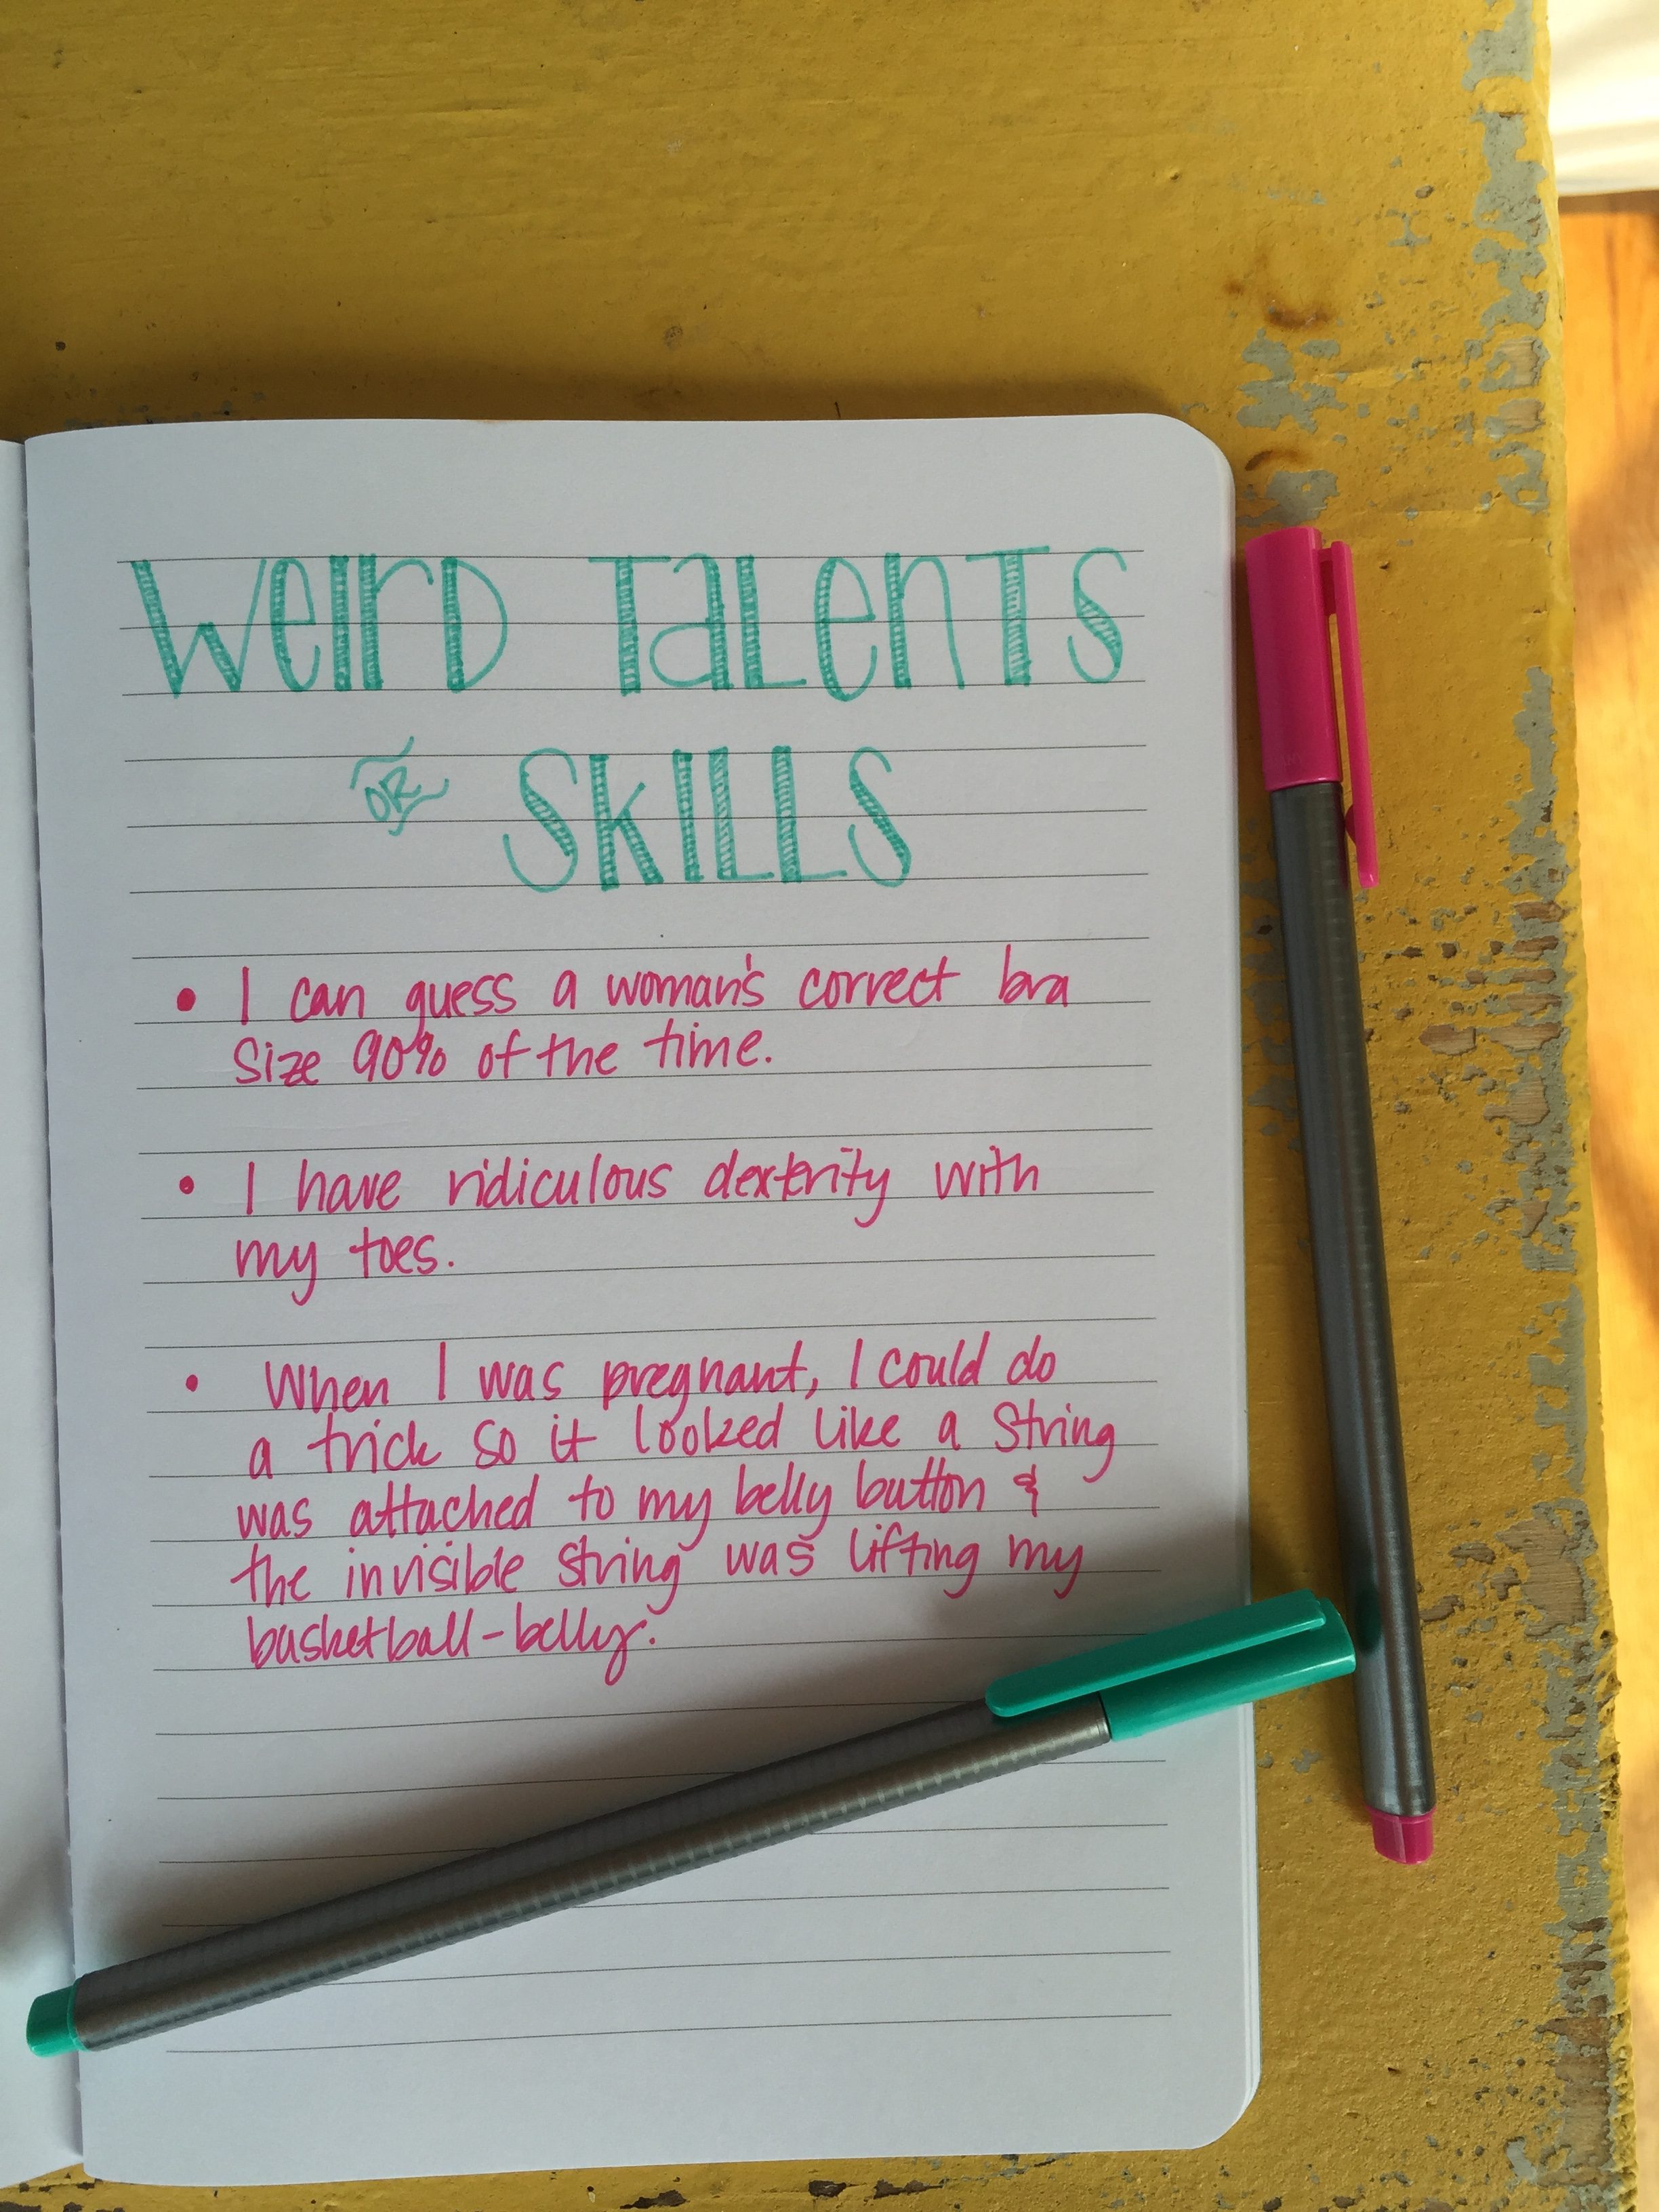 Weird Talents
or Skills
• I can guess a woman's correct bra
size 90% of the time.
• I have ridiculous dexterity with
my toes.
• When I was pregnant, I could do
a trick so it looked like a string
was attached to my belly button &
the invisible string was lifting my
basketball-belly.